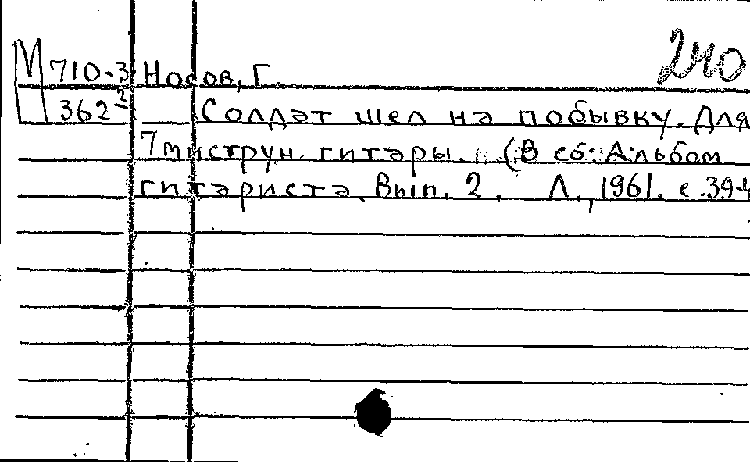 240
М 710-3 Носов, Г.
362-2 Солдат шел на побывку. Для
7миструн. гитары. (В сб: Альбом
гитариста. Вып. 2. Л., 1961. с. 39-4